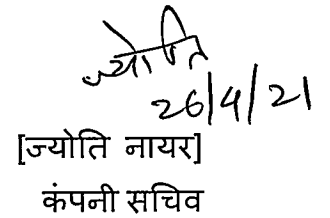 ज्योति
26/4/21
[ज्योति नायर]
कंपनी सचिव